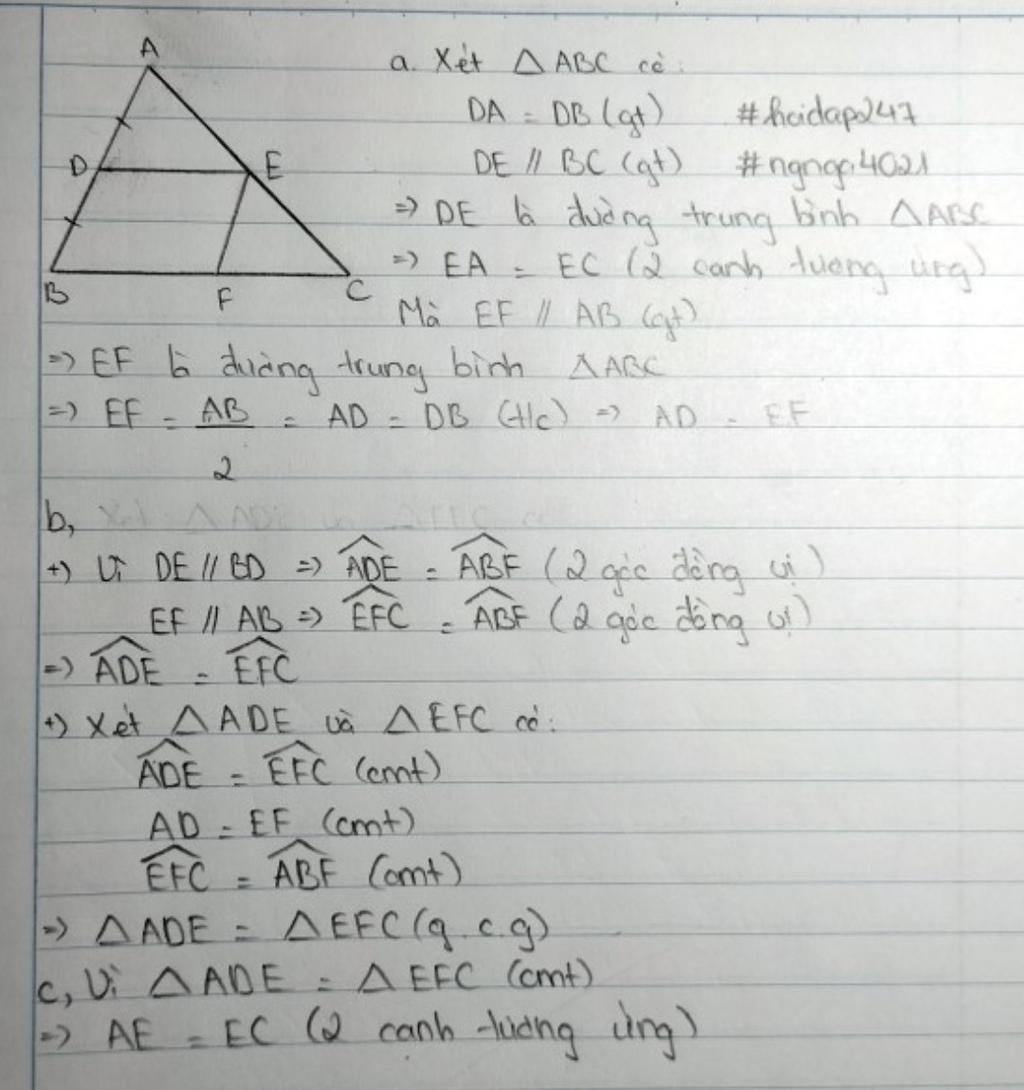 A
D
E
B
F
C
a. Xét △ABC có:
DA = DB (gt) #hoidap247
DE // BC (gt) #ngngoi4021
=> DE là đường trung bình △ABC
=> EA = EC (2 cạnh tương ứng)
Mà EF // AB (gt)
=> EF là đường trung bình △ABC
=> EF = AB/2 = AD = DB (t/c) => AD = EF
b,
+) Vì DE // BD => ADE = ABF (2 góc đồng vị)
EF // AB => EFC = ABF (2 góc đồng vị)
=> ADE = EFC
+) Xét △ADE và △EFC có:
ADE = EFC (cmt)
AD = EF (cmt)
EFC = ABF (cmt)
=> △ADE = △EFC (g.c.g)
c, Vì △ADE = △EFC (cmt)
=> AE = EC (2 cạnh tương ứng)